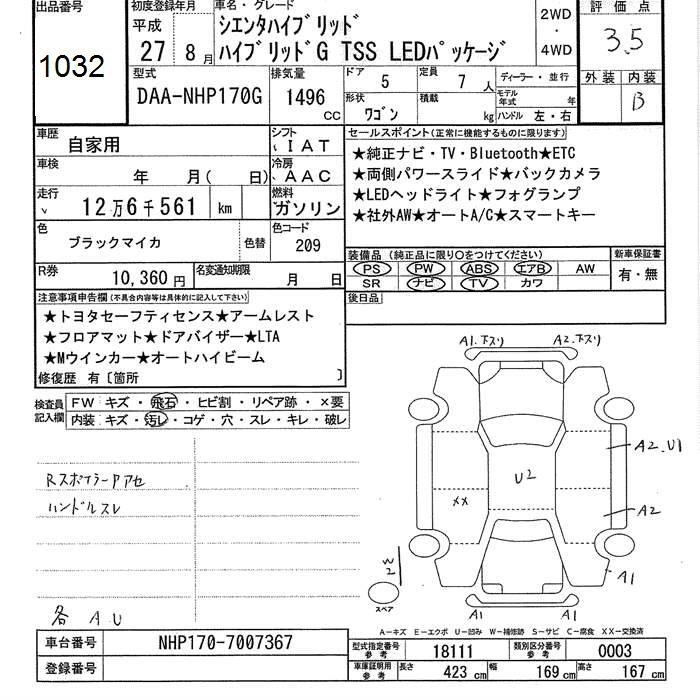 出品番号 1032
初度登録年月 平成 27年 8月
車名・グレード
シエンタハイブリッド
ハイブリッドG TSS LEDパッケージ
2WD・4WD
評価点 3.5
外装 内装 B
型式 DAA-NHP170G
排気量 1496 CC
ドア 5
定員 7 人
ディーラー・並行
形状 ワゴン
積載 kg
モデル年式 年
ハンドル 左・右
車歴 自家用
シフト I A T
車検 年 月( 日)
冷房 A A C
走行 12万6千561 km
燃料 ガソリン
色 ブラックマイカ 色替
色コード 209
R券 10,360円
名変通知期限 月 日
セールスポイント(正常に機能するものに限ります)
★純正ナビ・TV・Bluetooth★ETC
★両側パワースライド★バックカメラ
★LEDヘッドライト★フォグランプ
★社外AW★オートA/C★スマートキー
装備品 (純正品に限り○をつけてください)
PS PW ABS エアB AW
SR ナビ TV カワ
新車保証書 有・無
後日品
注意事項申告欄(不具合内容等は具体的に記入して下さい)
★トヨタセーフティセンス★アームレスト
★フロアマット★ドアバイザー★LTA
★Mウインカー★オートハイビーム
修復歴 有〔箇所 〕
検査員記入欄
FW キズ・飛石・ヒビ割・リペア跡・×要
内装 キズ・汚レ・コゲ・穴・スレ・キレ・破レ
Rスポイラーアセ
ハンドルスレ
各 A U
A1.下スリ
A2.下スリ
A2.U1
U2
XX
A2
A1
スペア
A1
A1
A-キズ E-エクボ U-凹み W-補修跡 S-サビ C-腐食 XX-交換済
車台番号 NHP170-7007367
登録番号
型式指定番号 参考 18111
類別区分番号 参考 0003
車庫証明用 参考 長さ 423 cm 幅 169 cm 高さ 167 cm